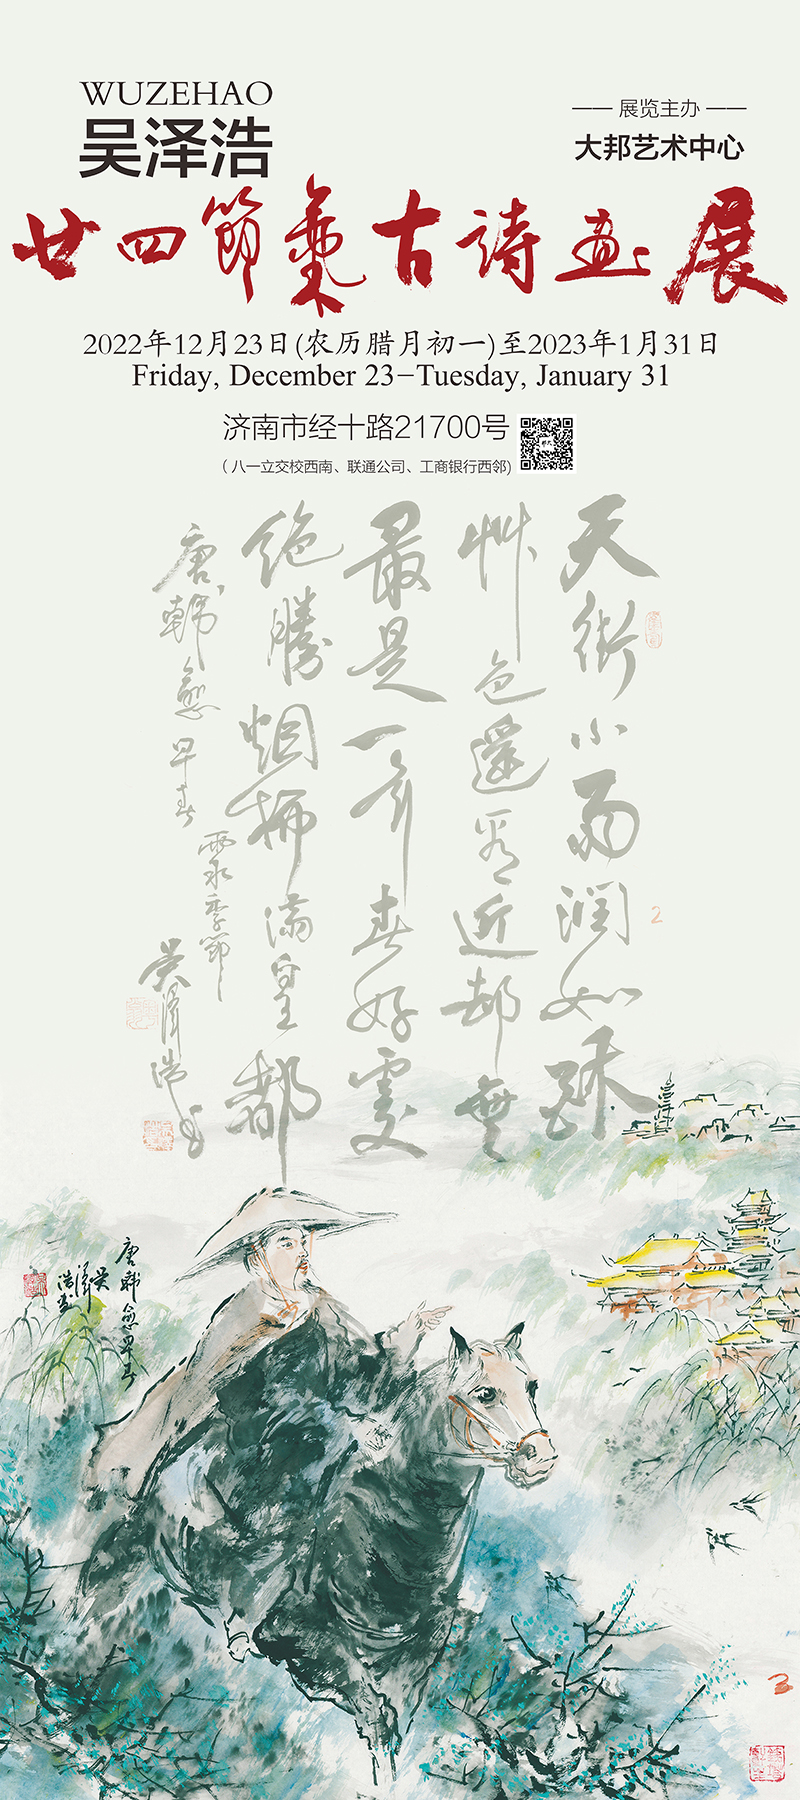 WUZEHAO
吴泽浩
—— 展览主办 ——
大邦艺术中心
廿四節氣古詩画展
2022年12月23日(农历腊月初一)至2023年1月31日
Friday, December 23–Tuesday, January 31
济南市经十路21700号
（八一立交桥西南、联通公司、工商银行西邻)
天街小雨潤如酥
艸色遥看近却無
最是一年春好處
绝勝烟柳滿皇都
唐韓愈早春
雨水季節
吴澤浩书
2
唐韩愈早春
吴澤浩画
3